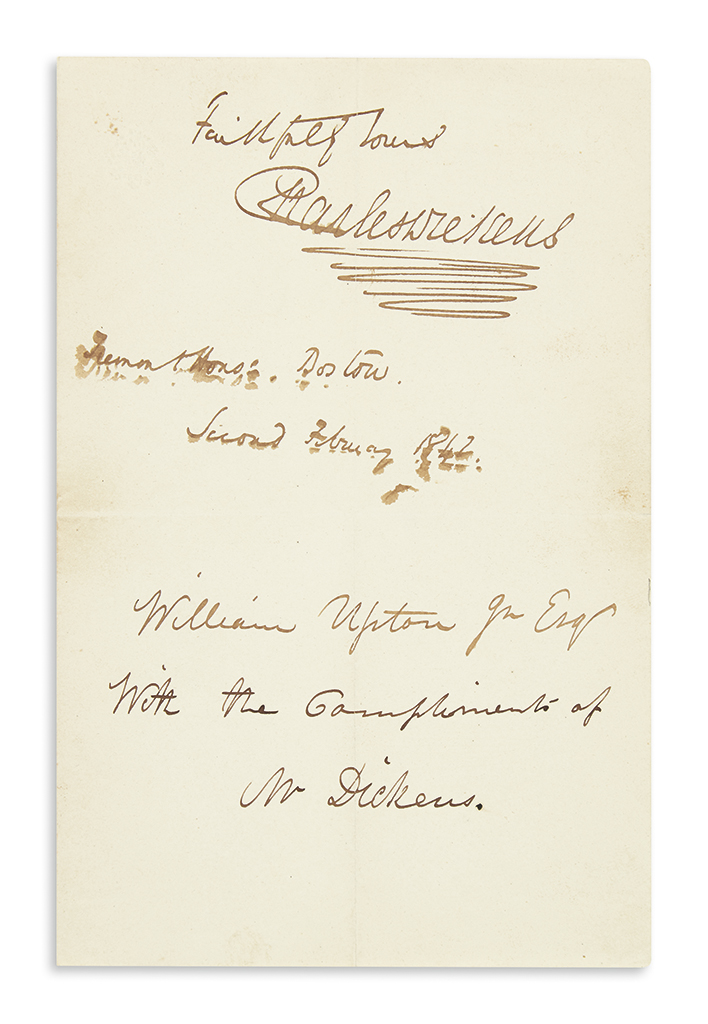 Faithfully Yours
Charles Dickens
Tremont House. Boston.
Second February 1842.
William Upton Jr Esqr
With the Compliments of
Mr Dickens.